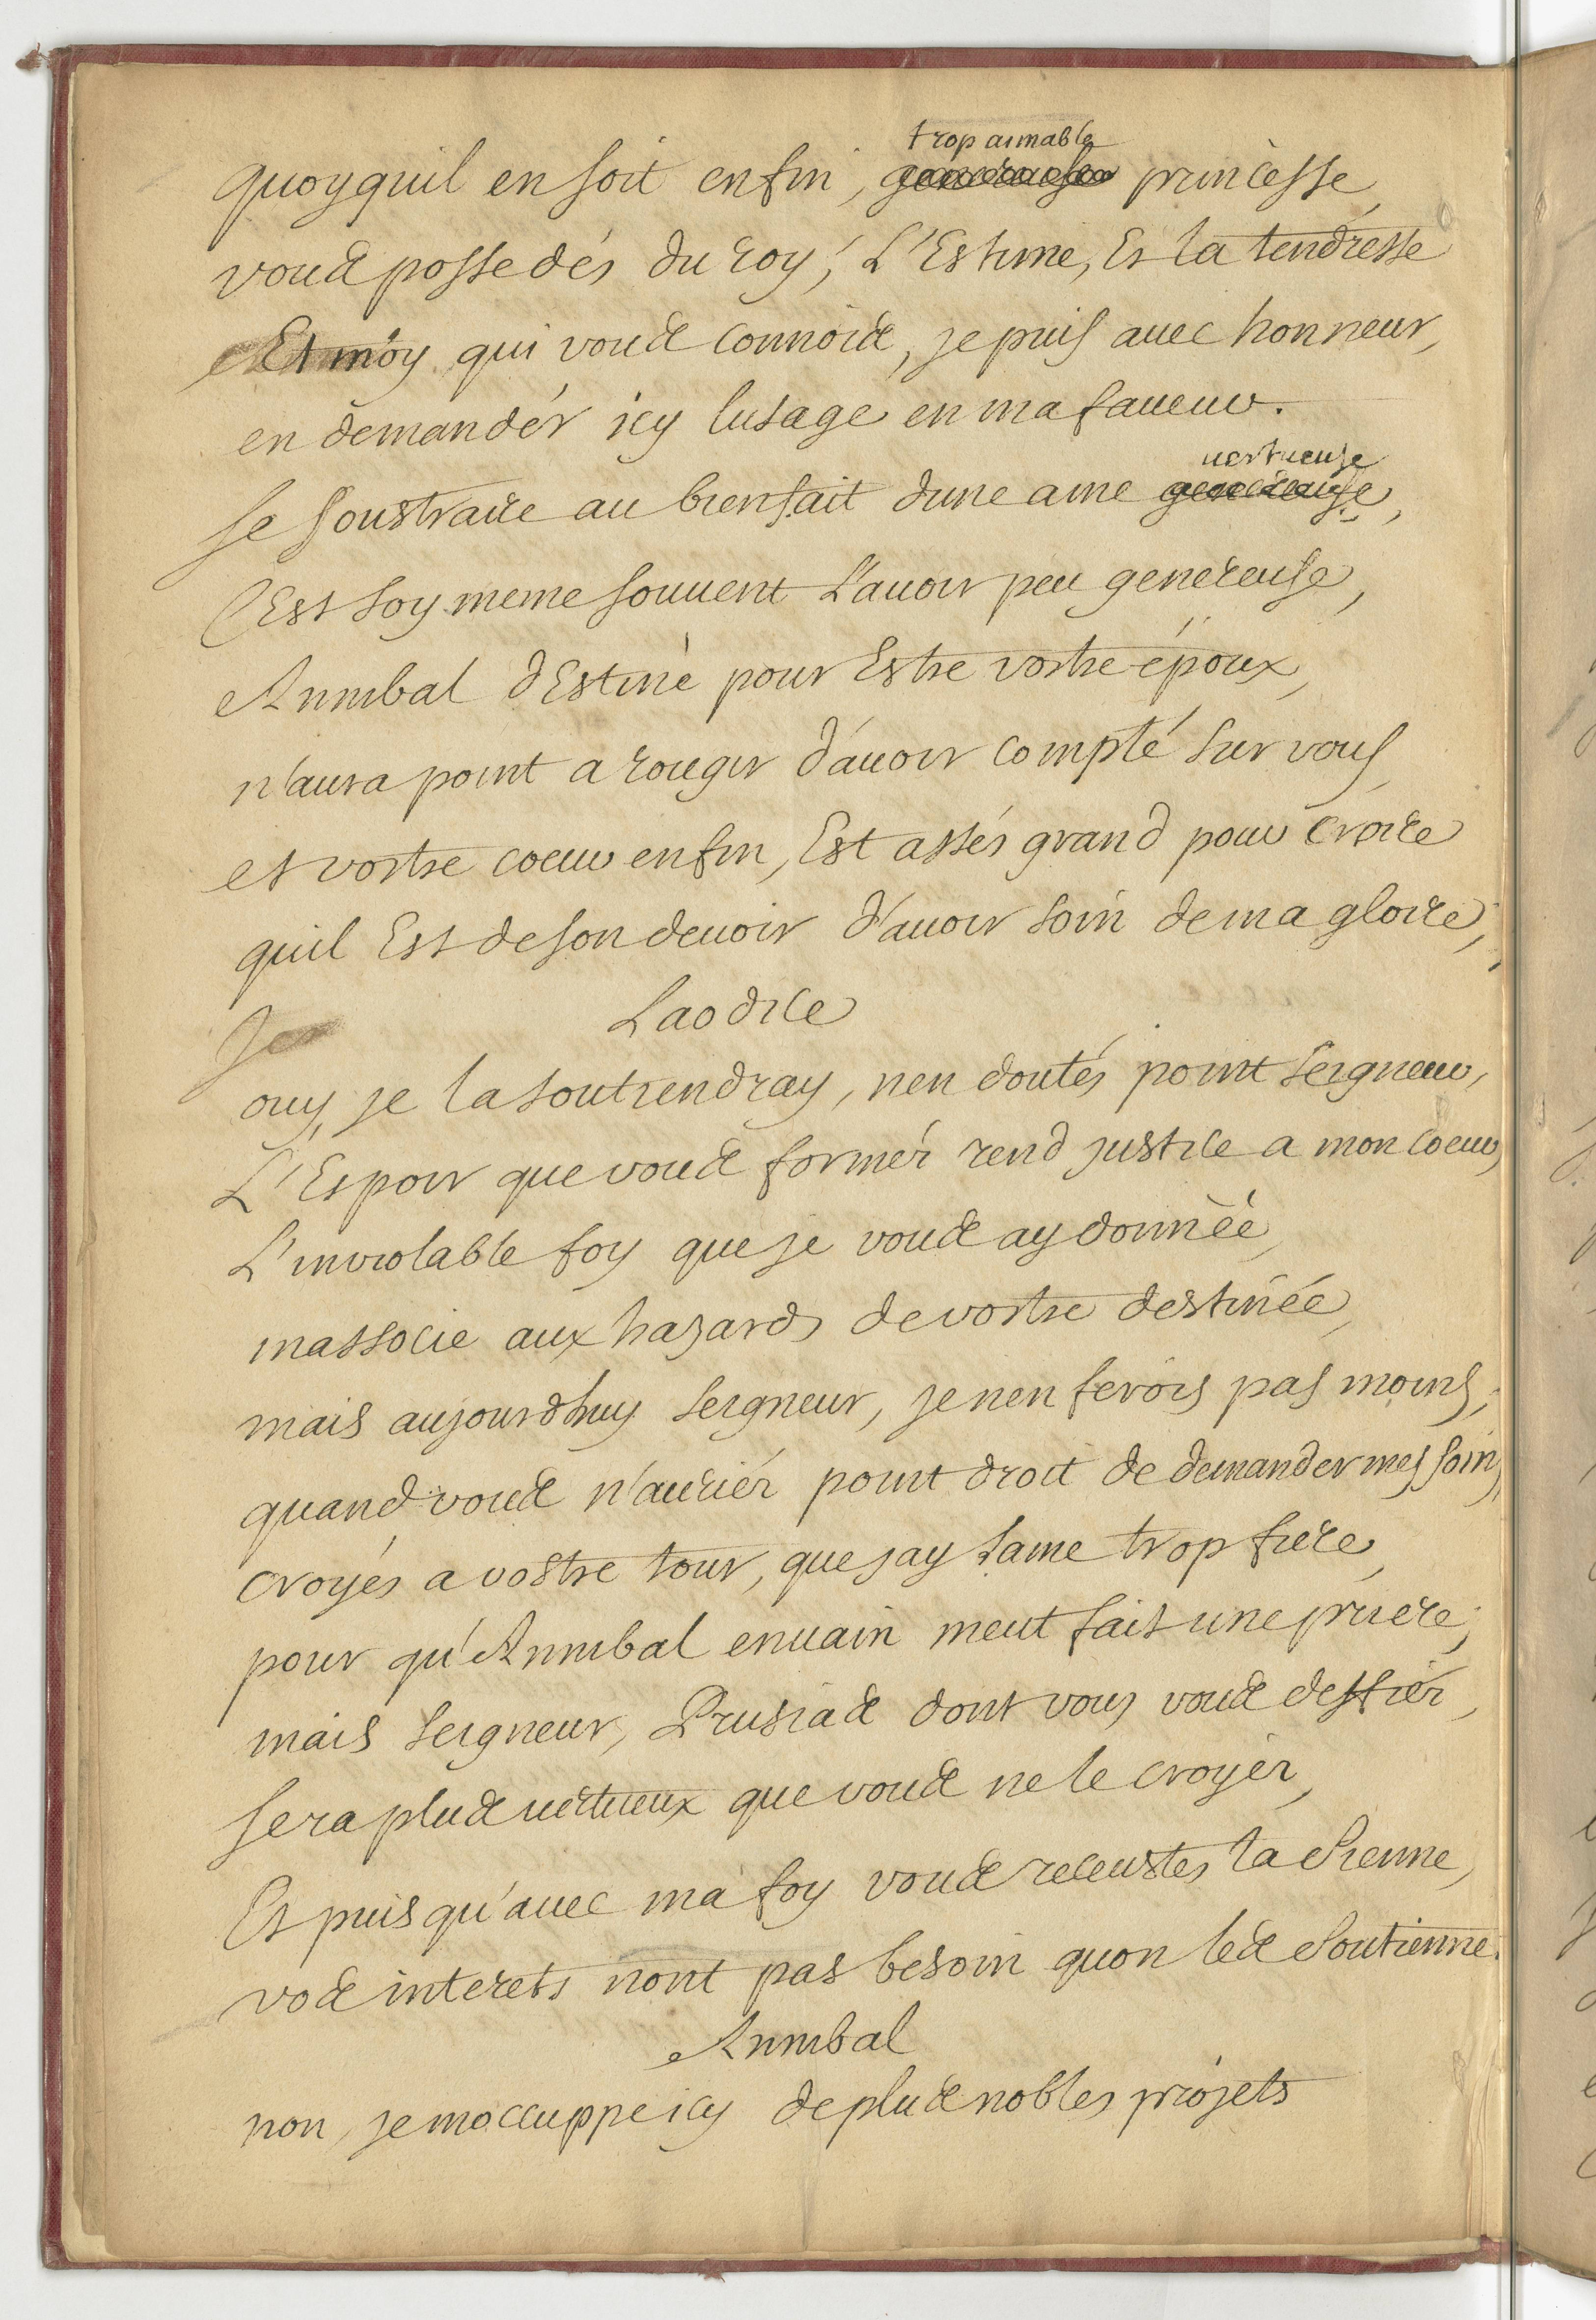 trop aimable
quoyquil en soit enfin, genereuse princesse,
vous possedés du roy, L'Estime, Et la tendresse
Et moy qui vous connois, je puis avec honneur,
en demander icy lusage en ma faveur.
vertueuse
se soustraire au bienfait dune ame genereuse,
C'Est soy meme souvent L'avoir peu genereuse,
Annibal dEstiné pour Estre vostre époux,
n'aura point a rougir d'avoir compté sur vous
et vostre coeur enfin, Est assés grand pour croire
quil Est de son devoir d'avoir soin de ma gloire,
Laodice
Je
ouy, je la soutiendray, nen doutés point seigneur,
L'Espoir que vous formér rend justice a mon coeur,
L'inviolable foy que je vous ay donnée,
massocie aux hazards de vostre destinée,
mais aujourdhuy seigneur, je nen ferois pas moins,
quand vous n'auriér point droit de demander mes soins,
croyés a vostre tour, que jay lame trop fiere,
pour qu'Annibal envain meut fait une priere,
mais seigneur, Prusias dont vous vous deffiér,
sera plus vertueux que vous ne le croyér,
Et puis qu'avec ma foy vous receustes la sienne,
vos interets nont pas besoin quon les soutienne.
Annibal
non, je moccuppe icy de plus nobles projets